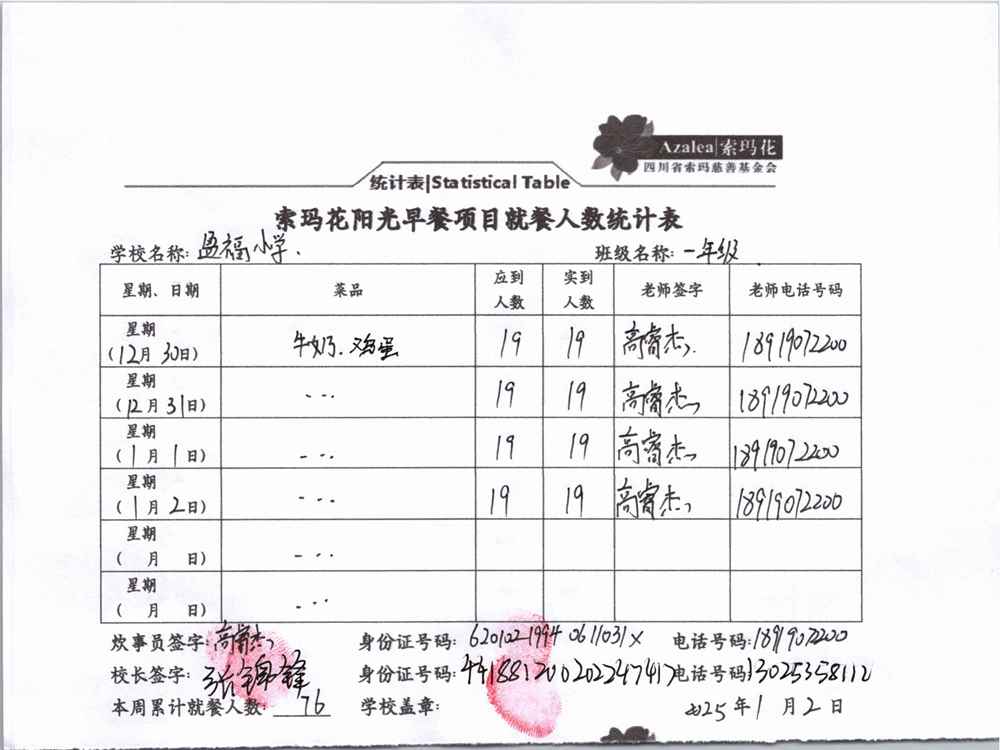 Azalea|索玛花
四川省索玛慈善基金会
统计表|Statistical Table
索玛花阳光早餐项目就餐人数统计表
学校名称: 盈福小学. 班级名称: 一年级
星期、日期 菜品 应到人数 实到人数 老师签字 老师电话号码
星期
(12月30日) 牛奶.鸡蛋 19 19 高睿杰 18919072200
星期
(12月31日) 19 19 高睿杰 18919072200
星期
(1月1日) 19 19 高睿杰 18919072200
星期
(1月2日) 19 19 高睿杰 18919072200
星期
( 月 日)
星期
( 月 日)
炊事员签字: 高睿杰 身份证号码: 62010219940611031X 电话号码: 18919072200
校长签字: 张锦锋 身份证号码: 441881200202247417 电话号码: 13025358112
本周累计就餐人数: 76 学校盖章: 2025年1月2日